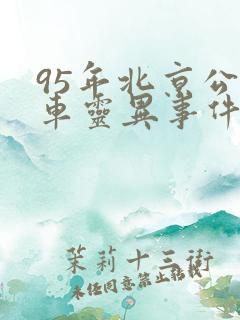 95年北京公
車靈異事件
茉莉十三街
未經同意禁止轉載